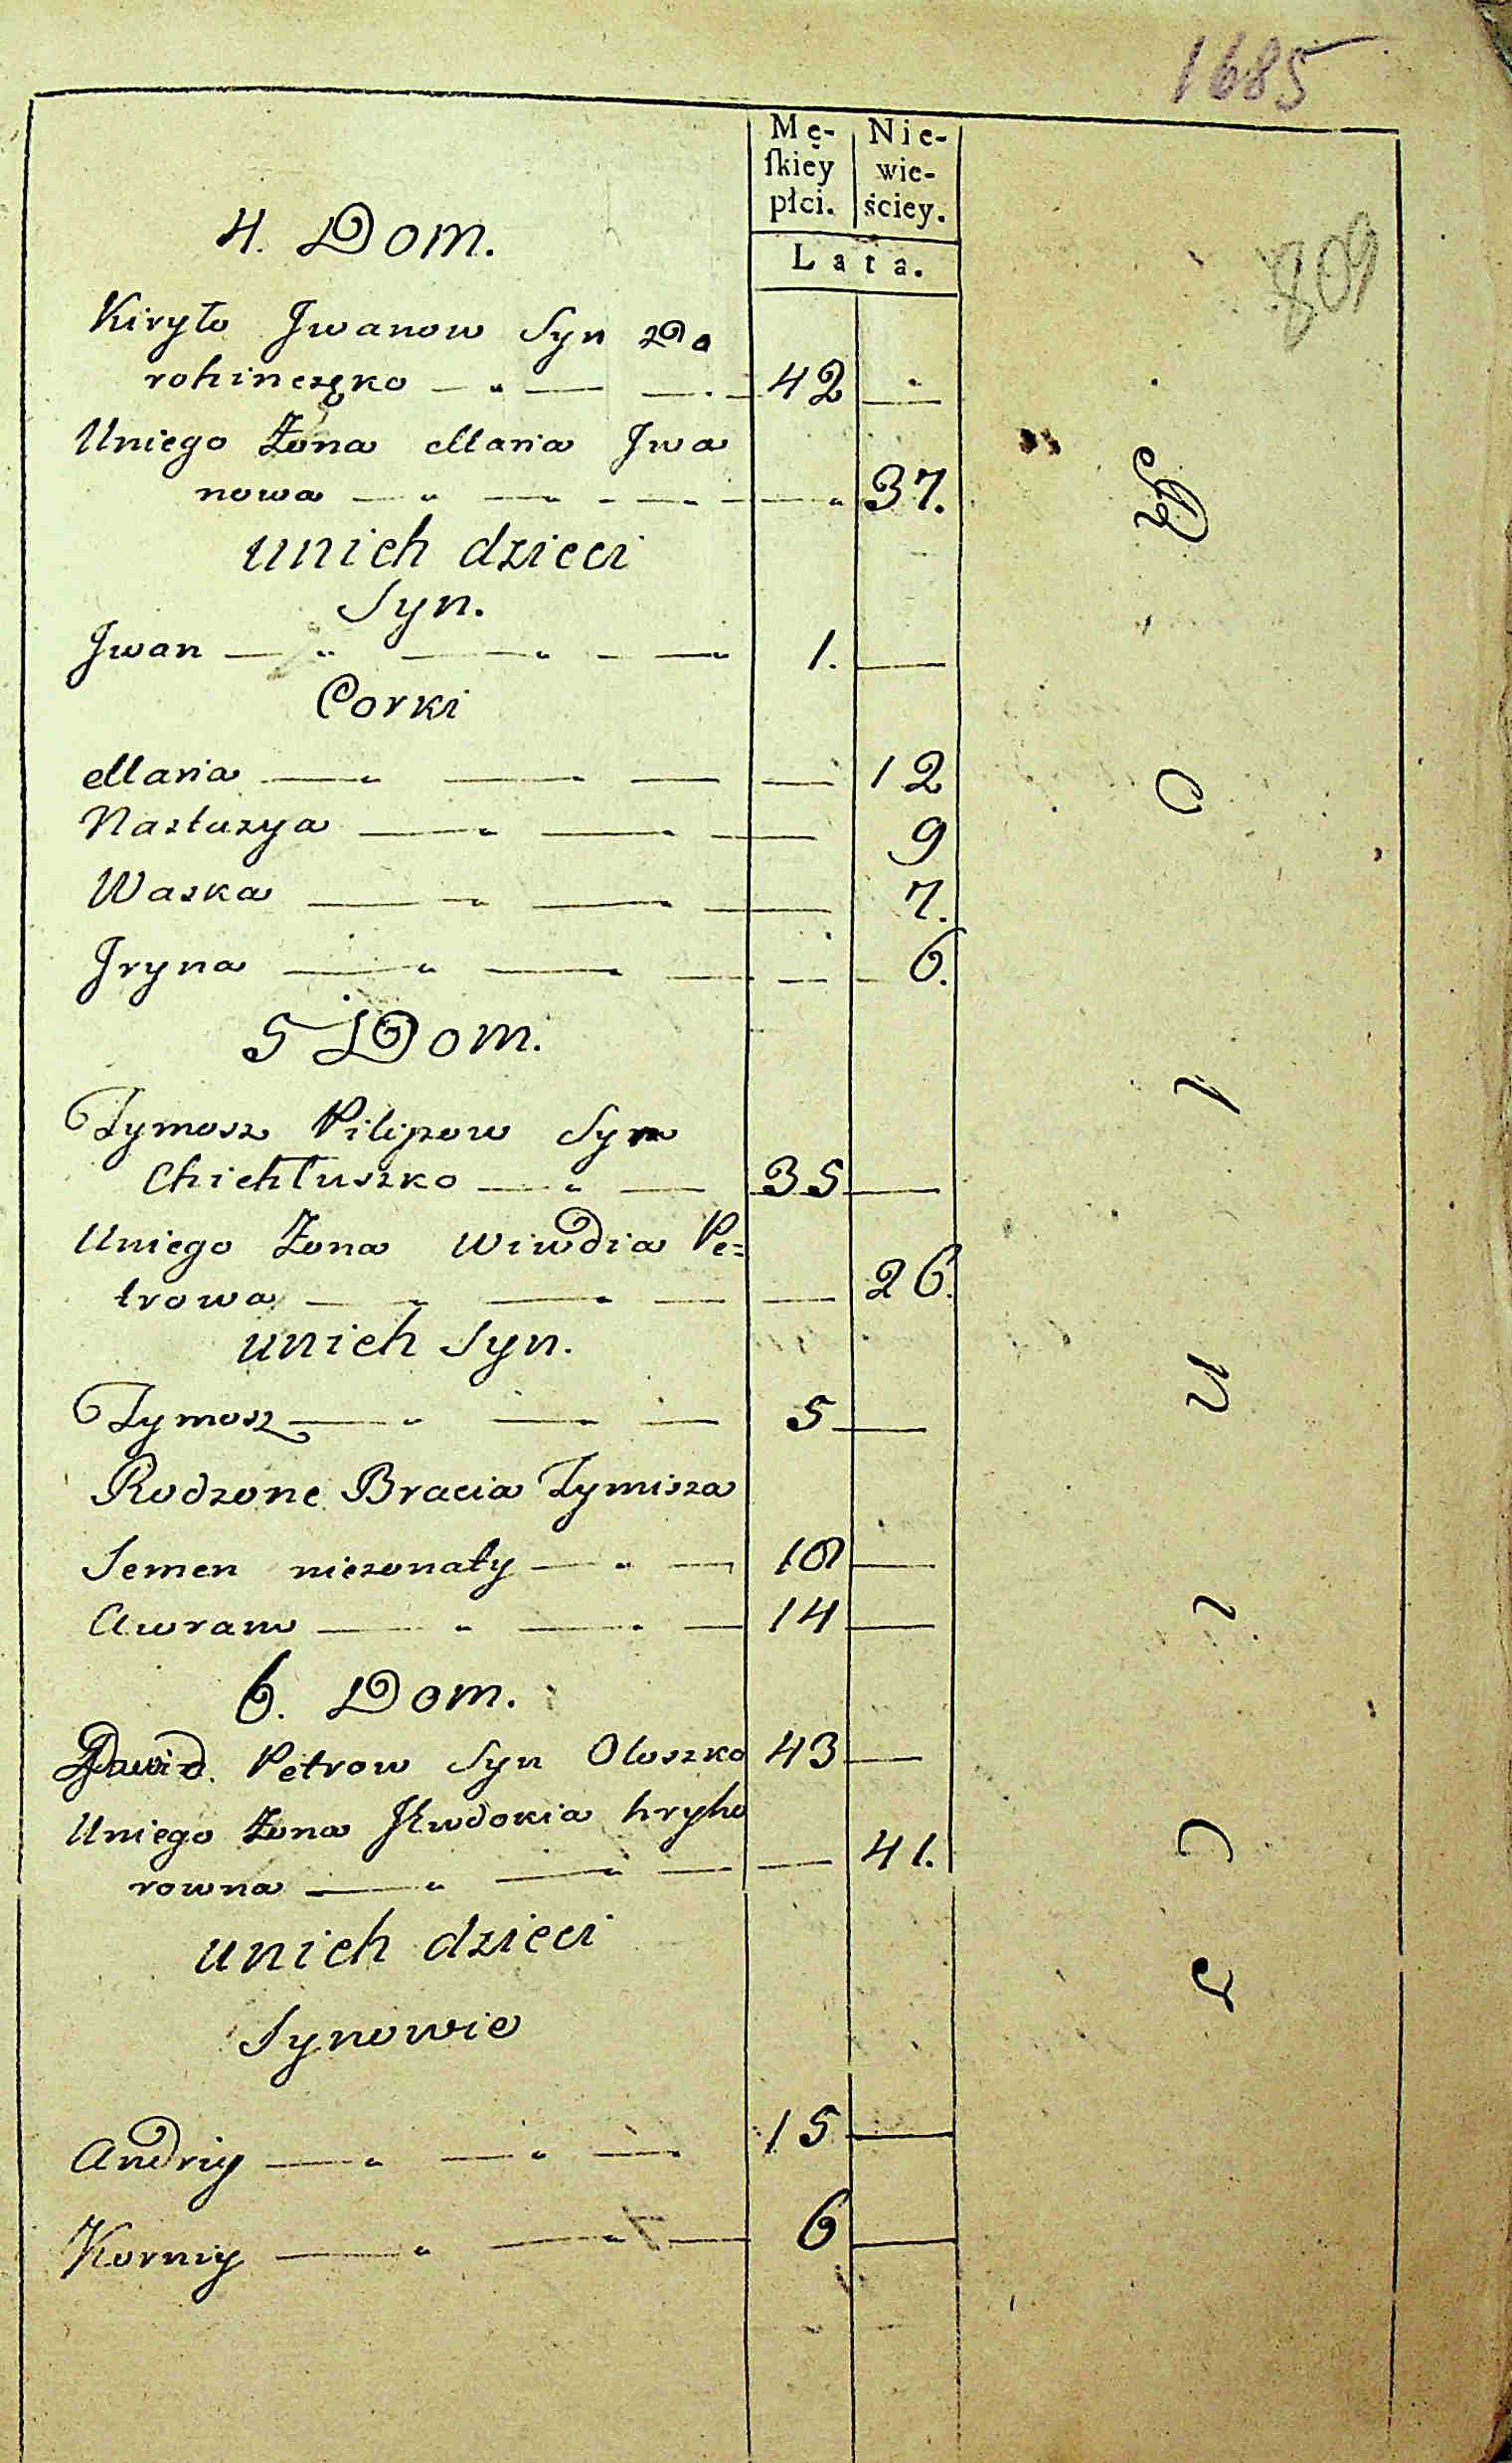 1685
Mę- Nie-
ſkiey wie-
płci. ściey.
Lata.
809
4. Dom.
Kiryło Jwanow Syn Do
rohineszko 42
Uniego Żona Maria Jwa
nowa 37.
unich dzieci
Syn.
Jwan 1.
Corki
Maria 12
Nastazya 9
Waska 7.
Jryna 6.
5 Dom.
Tymosz Pilipow Syn
Chichłuszko 35
Uniego Żona Wiwdia Pe=
trowa 26.
unich Syn.
Tymosz 5
Rodzone Bracia Tymisza
Semen nieżonaty 18
Awram 14
6. Dom.
Dawid. Petrow Syn Oloszko 43
Uniego Żona Jewdokia hryho
rowna 41.
unich dzieci
Synowie
Andriy 15
Korniy 6